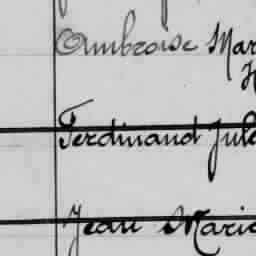 Ambroise Mar
Ferdinand Jule
Jean Marie